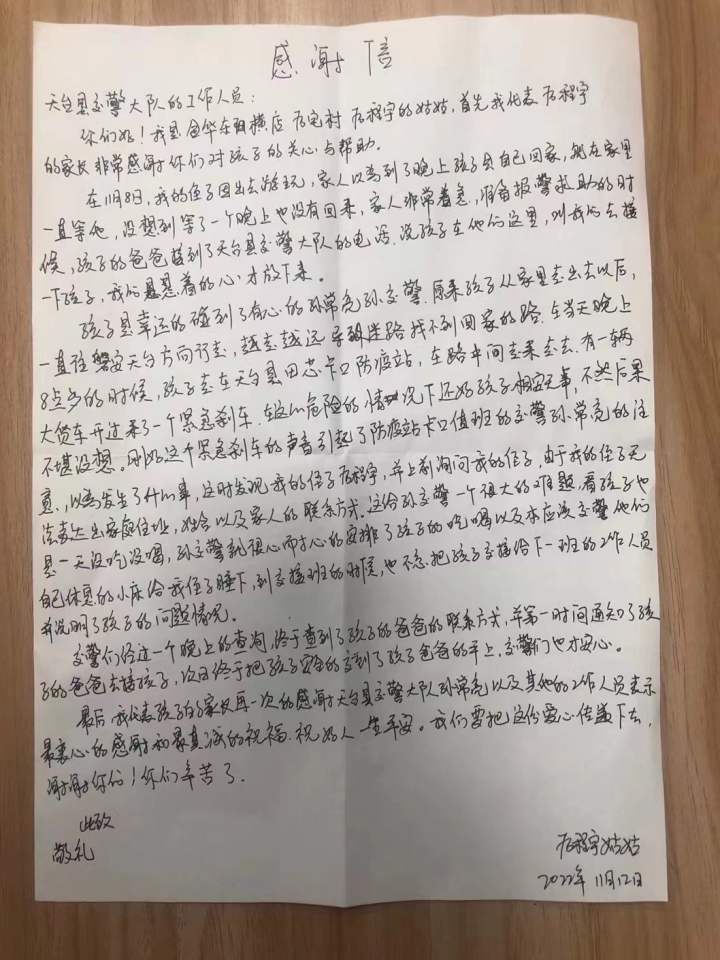 感谢信
天台县交警大队的工作人员:
你们好!我是金华东阳横店 宅村 程宇的姑姑,首先我代表 程宇
的家长 非常感谢你们对孩子的关心与帮助。
在11月8日,我的侄子因出去游玩,家人以为到了晚上孩子会自己回家,就在家里
一直等他,没想到等了一个晚上也没有回来,家人非常着急,准备报警求助的时
候,孩子的爸爸接到了天台县交警大队的电话,说孩子在他们这里,叫我们去接
一下孩子,我们悬着的心才放下来。
孩子是幸运的碰到了有心的孙常亮孙交警.原来孩子从家里走出去以后,
一直往磐安天台方向行走,越走越远 导致迷路 找不到回家的路.在当天晚上
8点多的时候,孩子走在天台县田芯卡口防疫站,在路中间走来走去.有一辆
大货车开过来了一个紧急刹车.在这么危险的情况下还好孩子相安无事,不然后果
不堪设想。刚好这个紧急刹车的声音引起了防疫站卡口值班的交警孙常亮的注
意,以为发生了什么事,这时发现我的侄子 程宇,并上前询问我的侄子,由于我的侄子无
法表达出家庭住址,姓名以及家人的联系方式.这给孙交警一个很大的难题,看孩子也
是一天没吃没喝,孙交警就很心而心的安排了孩子的吃喝以及本应该交警他们
自己休息的小床给我侄子睡下,到交接班的时候,也不忘把孩子交接给下一班的工作人员
并说明了孩子的问题情况。
交警们经过一个晚上的查询,终于查到了孩子的爸爸的联系方式,并第一时间通知了孩
子的爸爸去接孩子,次日终于把孩子安全的交到了孩子爸爸的手上,交警们也才安心。
最后,我代表孩子的家长再一次的感谢天台县交警大队孙常亮以及其他的工作人员表示
最衷心的感谢和最真诚的祝福.祝好人一生平安。我们要把这份爱心传递下去,
谢谢你们!你们辛苦了.
此致
敬礼
程宇姑姑
2022年11月12日